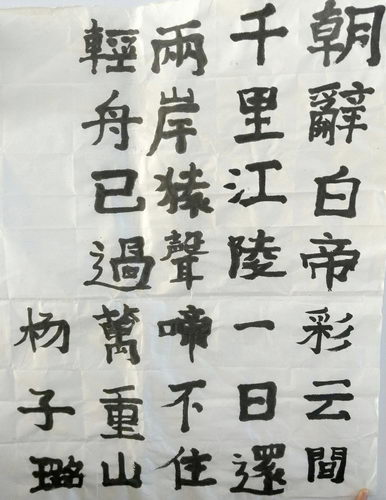 朝辭白帝彩云間
千里江陵一日還
兩岸猿聲啼不住
輕舟已過萬重山
杨子璐